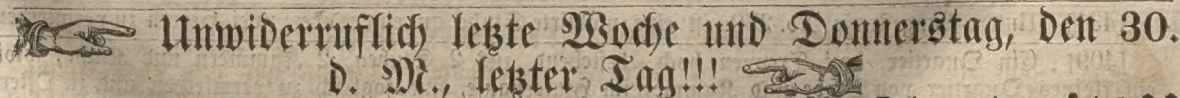 ☞ Unwiderruflich letzte Woche und Donnerstag, den 30.
d. M., letzter Tag!!! ☜